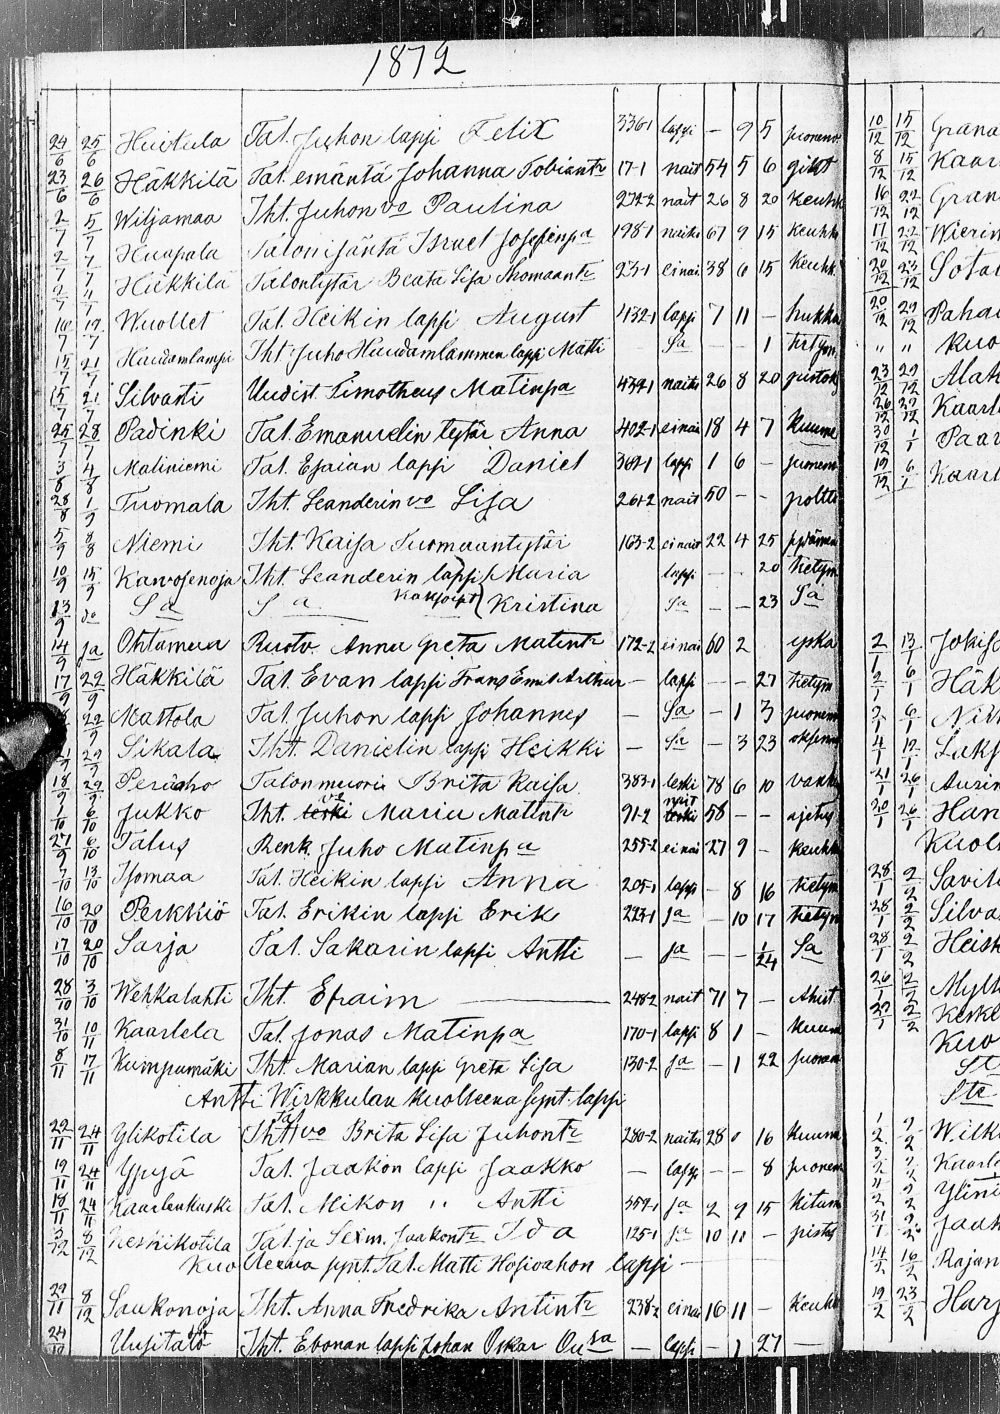 1872
24/6 25/6 Huitula Tal. Juhon lapsi Felix 336-1 lapsi — 9 5
23/6 26/6 Häkkilä Tal. emäntä Johanna Tobiantr 17-1 nait 54 5 6
2/7 5/7 Wiljamaa Iht. Juhon vo Paulina 272-2 nait 26 8 20 Keuhk
2/7 7/7 Haapala Talon isäntä Israel Josefinpa 198-1 naitu 67 9 15 Keuhk
2/7 4/7 Häkkilä Talontytär Beata Lisa Thomaantr 23-1 einai 38 6 15 Keuhk
16/7 19/7 Wuollet Tal. Heikin lapsi August 432-1 lapsi 7 11 — hukku
15/7 21/7 Haudamlampi Iht Juho Haudamlammen lapsi Matti — Sa — — 1
15/7 21/7 Silvasti Uudist. Timotheus Matinpa 439-1 naitu 26 8 20 pistok
25/7 28/7 Padinki Tal. Emanuelin tytär Anna 402-1 einai 18 4 7 Kuume
3/8 4/8 Maliniemi Tal. Esaian lapsi Daniel 362-1 lapsi 1 6 —
28/8 1/9 Tuomala Iht. Leanderin vo Lisa 261-2 nait 50 — — poltto
5/9 8/9 Niemi Iht. Kaisa Tuomaantytär 163-2 einait 22 4 25
10/9 15/9 Karvosenoja Iht. Leanderin lapsi Maria lapsi — — 20 hetym
13/9 do Sa Sa Kaksoset Kristina Sa — — 23 Sa
14/9 ja Ohtamaa Ruotv. Anna Greta Matintr 172-2 einai 60 2 yskä
17/9 22/9 Häkkilä Tal. Evan lapsi Frans Emil Arthur — lapsi — — 27 hetym
22/9 Mattola Tal. Juhon lapsi Johannes — Sa — 1 3
29/9 Sikala Iht Danielin lapsi Heikki — Sa — 3 23
18/9 29/9 Periaho Talon muori Brita Kaisa 383-1 leski 78 6 10 vanh
1/10 6/10 Jukko Iht. vo Maria Matintr 91-2 nait 58 — — ajetus
27/9 6/10 Talus Renk Juho Matinpa 255-2 einai 27 9 — keuhk
7/10 13/10 Isomaa Tal. Heikin lapsi Anna 205-1 lapsi — 8 16 hetym
16/10 20/10 Perkkiö Tal. Erikin lapsi Erik 223-1 ja — 10 17 hetym
17/10 20/10 Sarja Tal. Sakarin lapsi Antti — ja — — 1/24 Sa
28/10 3/10 Wehkalahti Iht. Efraim — 248-2 nait 71 7 — Ahist
31/10 10/11 Kaarlela Tal Jonas Matinpa 170-1 lapsi 8 1 — Kuum
8/11 17/11 Kumpumäki Iht. Marian lapsi Greta Lisa 130-2 ja — 1 22
Antti Wirkkulan Kuolleena synt. lapsi
22/11 24/11 Ylikotila Tal vo Brita Lisa Juhontr 280-2 naitu 28 0 16 Kuume
19/11 24/11 Ypyä Tal. Jaakon lapsi Jaakko — lapsi — — 8
18/11 24/11 Kaarlenkaski Tal. Mikon „ Antti 359-1 ja 2 9 15 Kitum
3/12 8/12 Keskikotila Tal. ja Sexm. Jaakontr Ida 125-1 ja 10 11 — pistos
Kuolleena synt. Tal. Matti Hosioahon lapsi
29/11 8/12 Saukonoja Iht. Anna Fredrika Antintr 238-2 einai 16 11 — Keuhk
Uusitalo Iht. Ebonan lapsi Johan Oskar — lapsi — 1 27 —
10/12 15/12 Grana
8/12 15/12 Kaar
16/12 22/12 Gran
17/12 22/12 Wierin
20/12 23/12 Sota
20/12 29/12 Paha
„ „ Kuo
23/12 29/12 Alak
26/12 29/12 Kaarl
30/12 1/1 Paar
19/12 6/1 Kaarl
2/1 13/1 Jokis
2/1 6/1 Häk
Laks
21/1 26/1 Aurin
20/1 26/1 Han
Kuoll
28/1 2/2 Savil
28/1 2/2 Silva
28/1 2/2 Heisk
26/1 2/2 Myll
27/1 2/2 Keske
Kuo
Wilk
Kaarl
Ylini
Jaak
14/2 16/2 Rajan
19/2 23/2 Harj